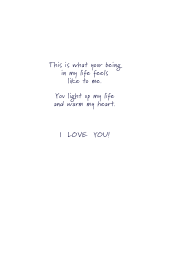 This is what your being
in my life feels
like to me.
You light up my life
and warm my heart.
I LOVE YOU!